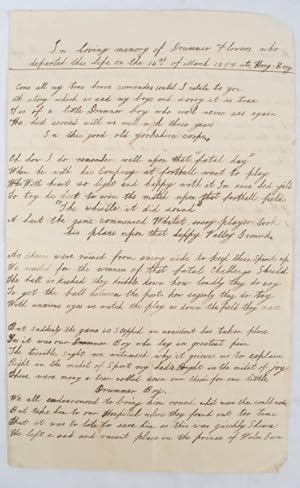 In loving memory of Drummer Flowers who
departed this life on the 14th of March 1897 at Hong-Kong
Come all my true brave comrades until I relate to you
A story which is sad my boys and sorry it is true
Tis of a little Drummer boy who we'll never see again
He had served with us well nigh three years
In this good old Yorkshire corps,
Oh how I do remember well upon that fatal day
When he with his Company at football went to play
With heart so light and happy with it In one did join
To try his best to win the match upon that football field
The whistle it did sound
And the game commenced Whilst every player took
His place upon that happy Valley Ground.
As cheers were raised from every side to keep their spirits up
We waited for the winners of that fatal Challenge Shield
The ball is kicked they dribble down how loudly they do cry
To get the ball between the posts how eagerly they do try
With anxious eyes we watch the play as down the field they
But suddenly the game is stopped an accident has taken place
For it was our Drummer Boy who lay in greatest pain
The terrible sight we witnessed why it grieves us to explain
Right in the midst of Sport my lads Right in the midst of joy
There were many a tear rolled down our cheeks for our little
Drummer Boy.
We all endeavoured to bring him round what were the could
But take him to our Hospital where they found out too true
That it was to late to save him as this was quickly shown
He left a sad and vacant place in the prince of Wales Own